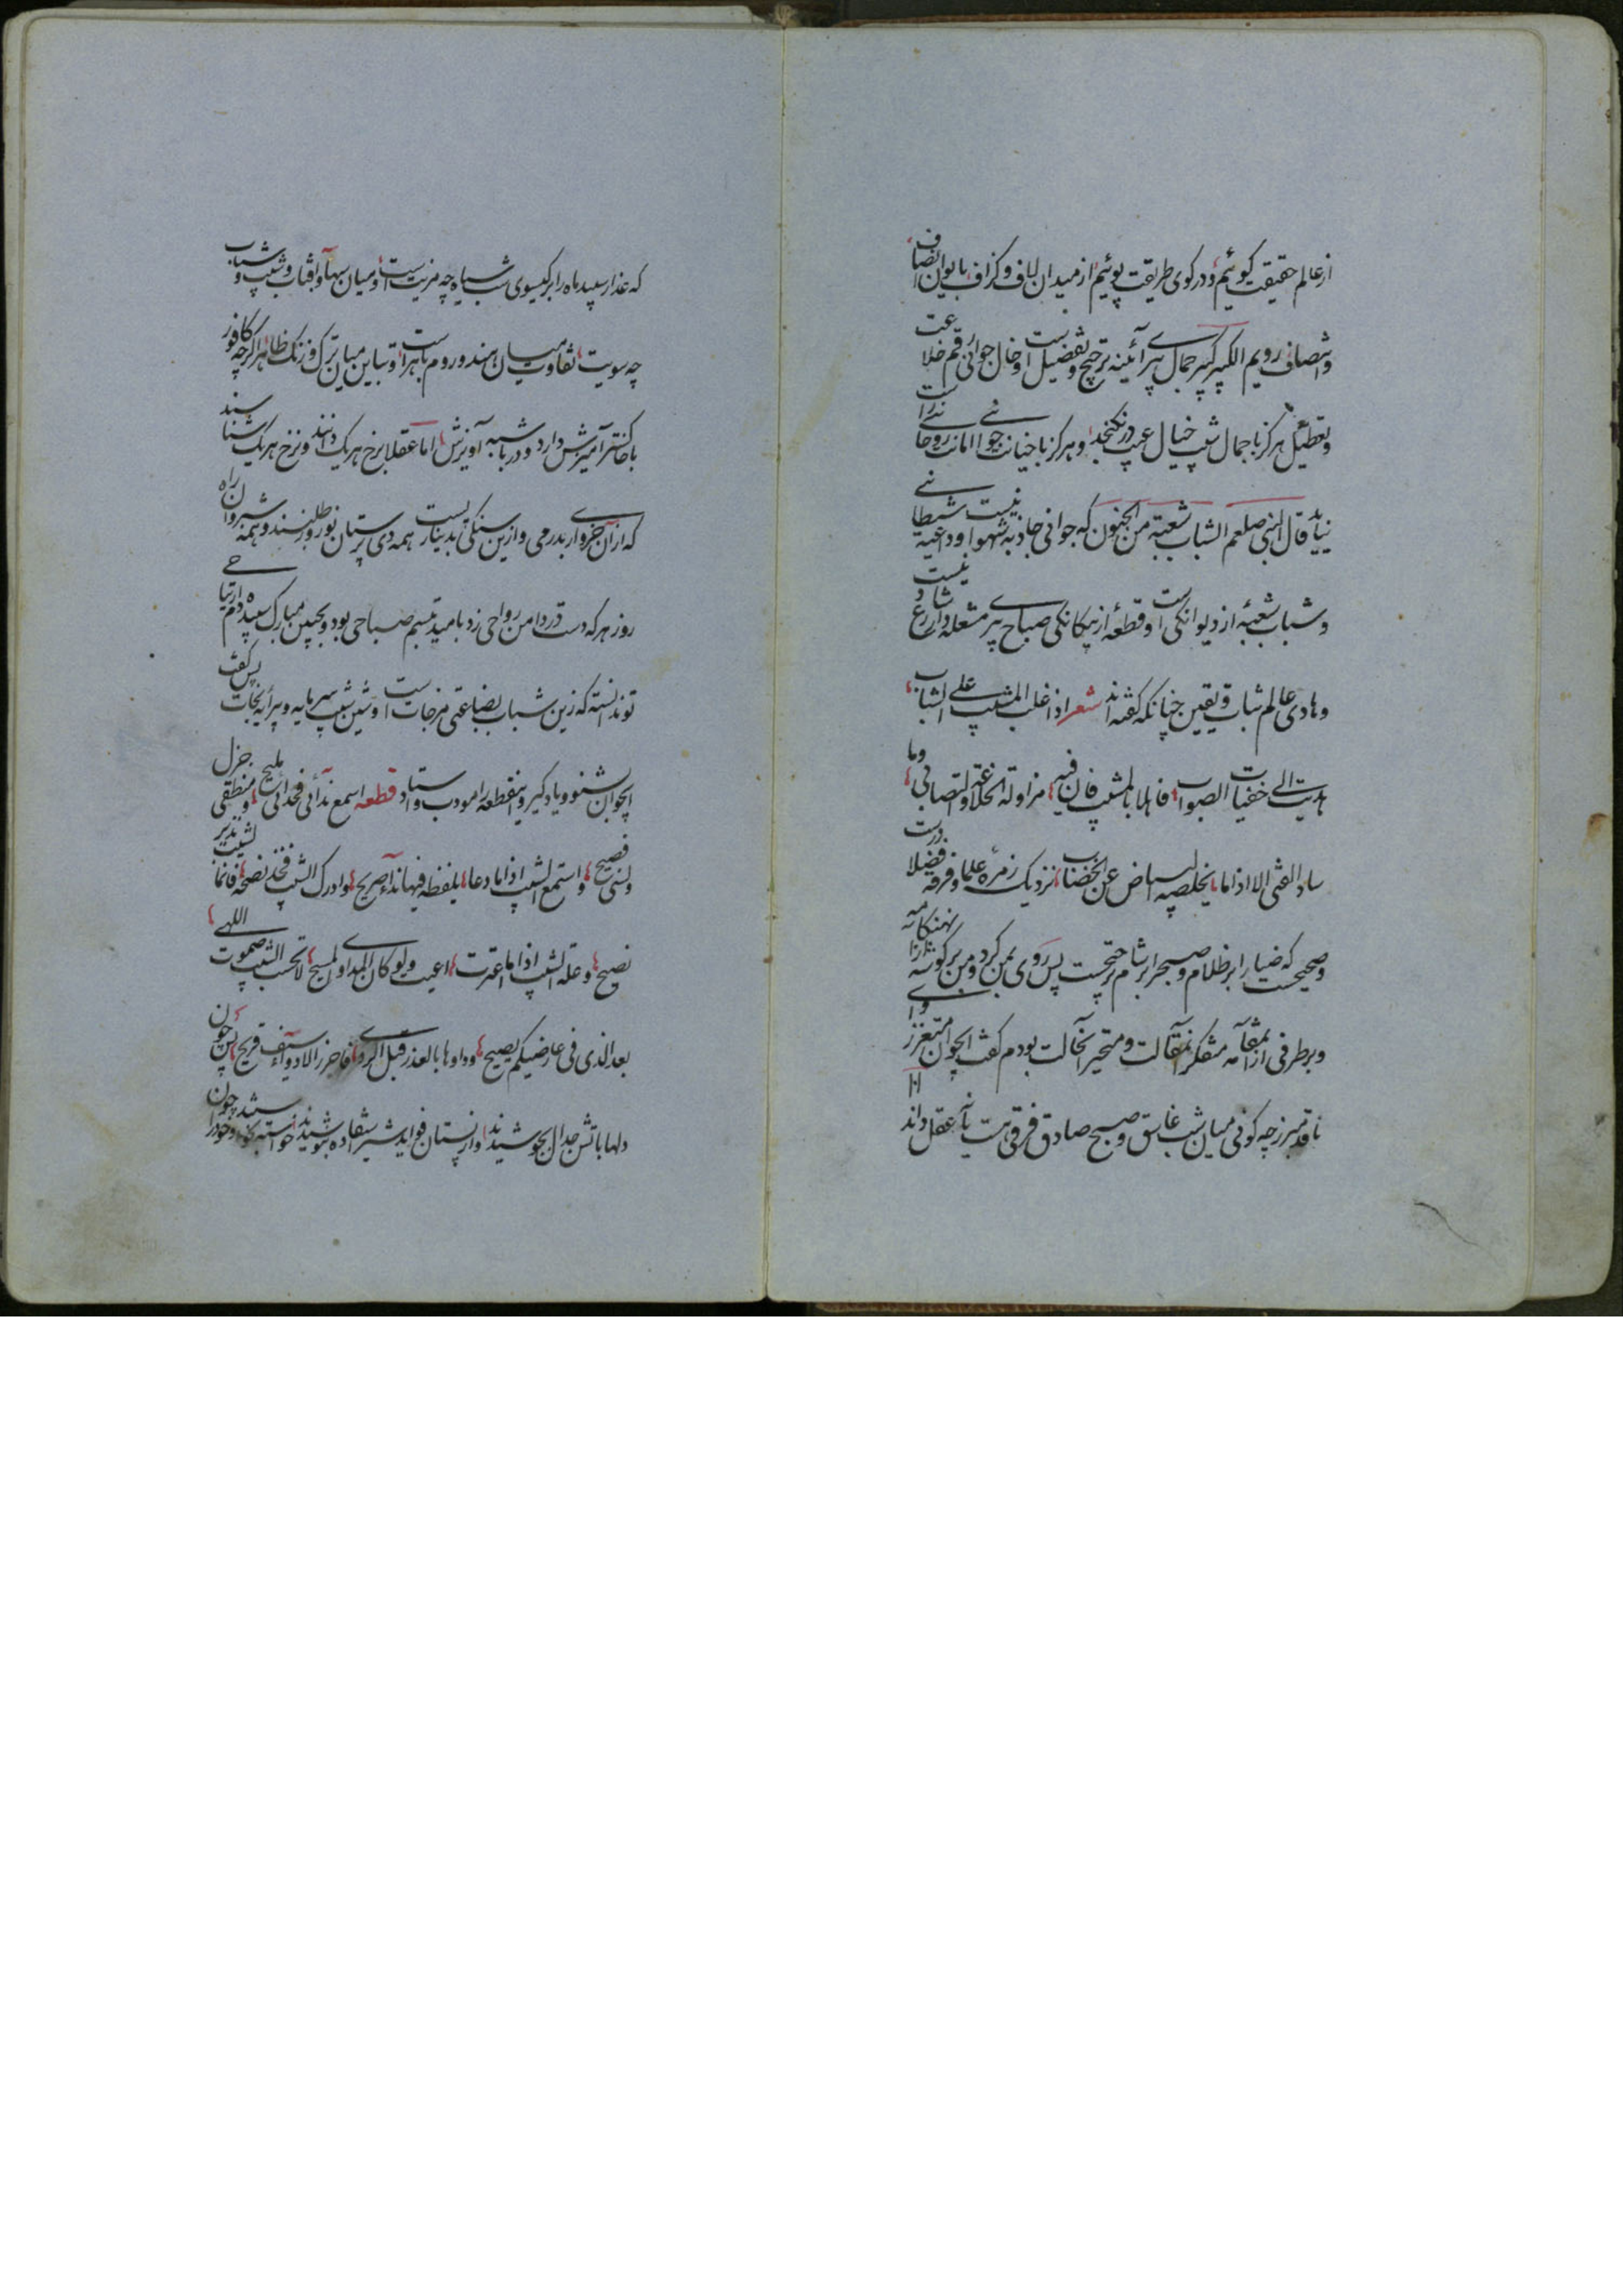 از عالم حقیقت گوئیم و در کوی طریقت پوئیم از میدان لاف و گزاف بایوان انصاف
و اتصاف رویم الکبر کبر جمال پیری آئینه ترجیح و تفضیل است و خال جوانی رقم خلاعت
و تعطیل هرگز با جمال شیب خیال عیب در نگنجد و هرگز با خیانت جوانی امانت روحانی ندراست
نیاید قال النبی صلعم الشباب شعبة من الجنون که جوانی جاذبه شهوانیست و داعیه شیطانی
و شباب شعبهٔ از دیوانگی است و قطعهٔ از بیگانگی صباح پیری مشعله‌دار رشاد نیست
و هادی عالم ثبات و یقین چنانکه گفته‌اند شعر اذا غلب المشیب علی الشباب
هدیت الی خفیات الصواب فاهلا بالمشیب فان فیه مزاولة الخلاعة والتصابی وما
ساد الفتی الا اذا ما یخلصه البیاض عن الخضاب نزدیک زمرهٔ علما و فرقهٔ فضلا درست
و صحیحست که ضیا را بر ظلام و صبح را بر شام ترجیحست پس روی بمن کرد و من بر گوشهٔ هنگامه نظاره
و بر طرفی از آن مقامه متفکر آنمقالت و متحیر آنحالت بودم گفت ایجوان متعزز و ای
ناقد مبرز چه گوئی میان شب غاسق و صبح صادق فرقی هست یا نه عقل داند
که عذار سپید ماه را بر گیسوی شب سیاه چه مزیت است و میان سها و آفتاب و شیب و شباب
چه سویت تفاوت میان هند و روم باهر است و تباین میان ترک و زنگ ظاهر اگرچه کافور
با خاکستر آمیزش دارد و در با شبه آویزش اما عقلا برخ هر یک دانند و نرخ هر یک شناسند
که از آن خرواری بدرمی و ازین سنگی بدینار یست همه دی پرستان نور طلبند و همه شبروان راه
روز هر که دست در دامن رواحی زد بامید تبسم صباحی بود و بحین مبارک سپیده دم ارتیاحی
تو ندانسته که زین شباب بضاعتی مزجات است و شین شیب سرمایه و پیرایه نجات پس گفت
ایجوان بشنو و یاد گیر و اینقطعه را مودب و استاد قطعه اسمع ندائی فخدائی ملیح و منطقی جزل
ولسنی فصیح واستمع الشیب اذا ما دعا بلفظه فیها نداء صریح وادرک الشیب فخذ نصحه فانما الشیب نذیر
نصیح وعلة الشیب اذا ما اعترت اعیت ولو کان المداوی المسیح لا تحسب الشیب صموت اللهی
بعد الذی فی عارضیکم یصیح وداوها بالعذر قبل الردی فاحرز الادواء سیف قریح پس چون
دلها باتش جدال بجوشیدند و از پستان فواید شیر استفاده بنوشیدند خواسته شد چون